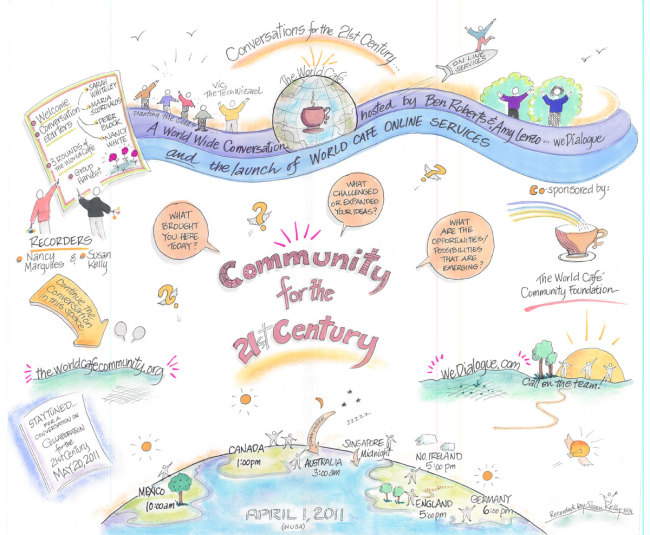 Conversations for the 21st Century...
The World Café
ON LINE
SERVICES
Vic
The Tech Wizard
Planting the
hosted by Ben Roberts & Amy Lenzo... weDialogue
A World Wide Conversation
and the launch of WORLD CAFE ONLINE SERVICES
Welcome
Conversation
starters
SARAH
WHITELEY
MARIA
PETER
BLOCK
NANCY
WHITE
3 ROUNDS of
the World Café
Group
Harvest
RECORDERS
Nancy
Margulies & Susan
Kelly
WHAT
BROUGHT
YOU HERE
TODAY?
WHAT
CHALLENGED
OR EXPANDED
YOUR IDEAS?
WHAT
ARE THE
OPPORTUNITIES/
POSSIBILITIES
THAT ARE
EMERGING?
Co-sponsored by:
The World Café
Community Foundation
Community
for the
21st Century
Continue the
Conversation
in this space
theworldcafecommunity.org
weDialogue.com
Call on the team!
STAY TUNED...
FOR A
CONVERSATION ON
COLLABORATION
for the
21st Century
MAY 20, 2011
zzzzz
CANADA
1:00pm
AUSTRALIA
3:00am
SINGAPORE
Midnight
NO. IRELAND
5:00pm
MEXICO
10:00am
ENGLAND
5:00pm
GERMANY
6:00pm
APRIL 1, 2011
(in USA)
Recorded by: Susan Kelly